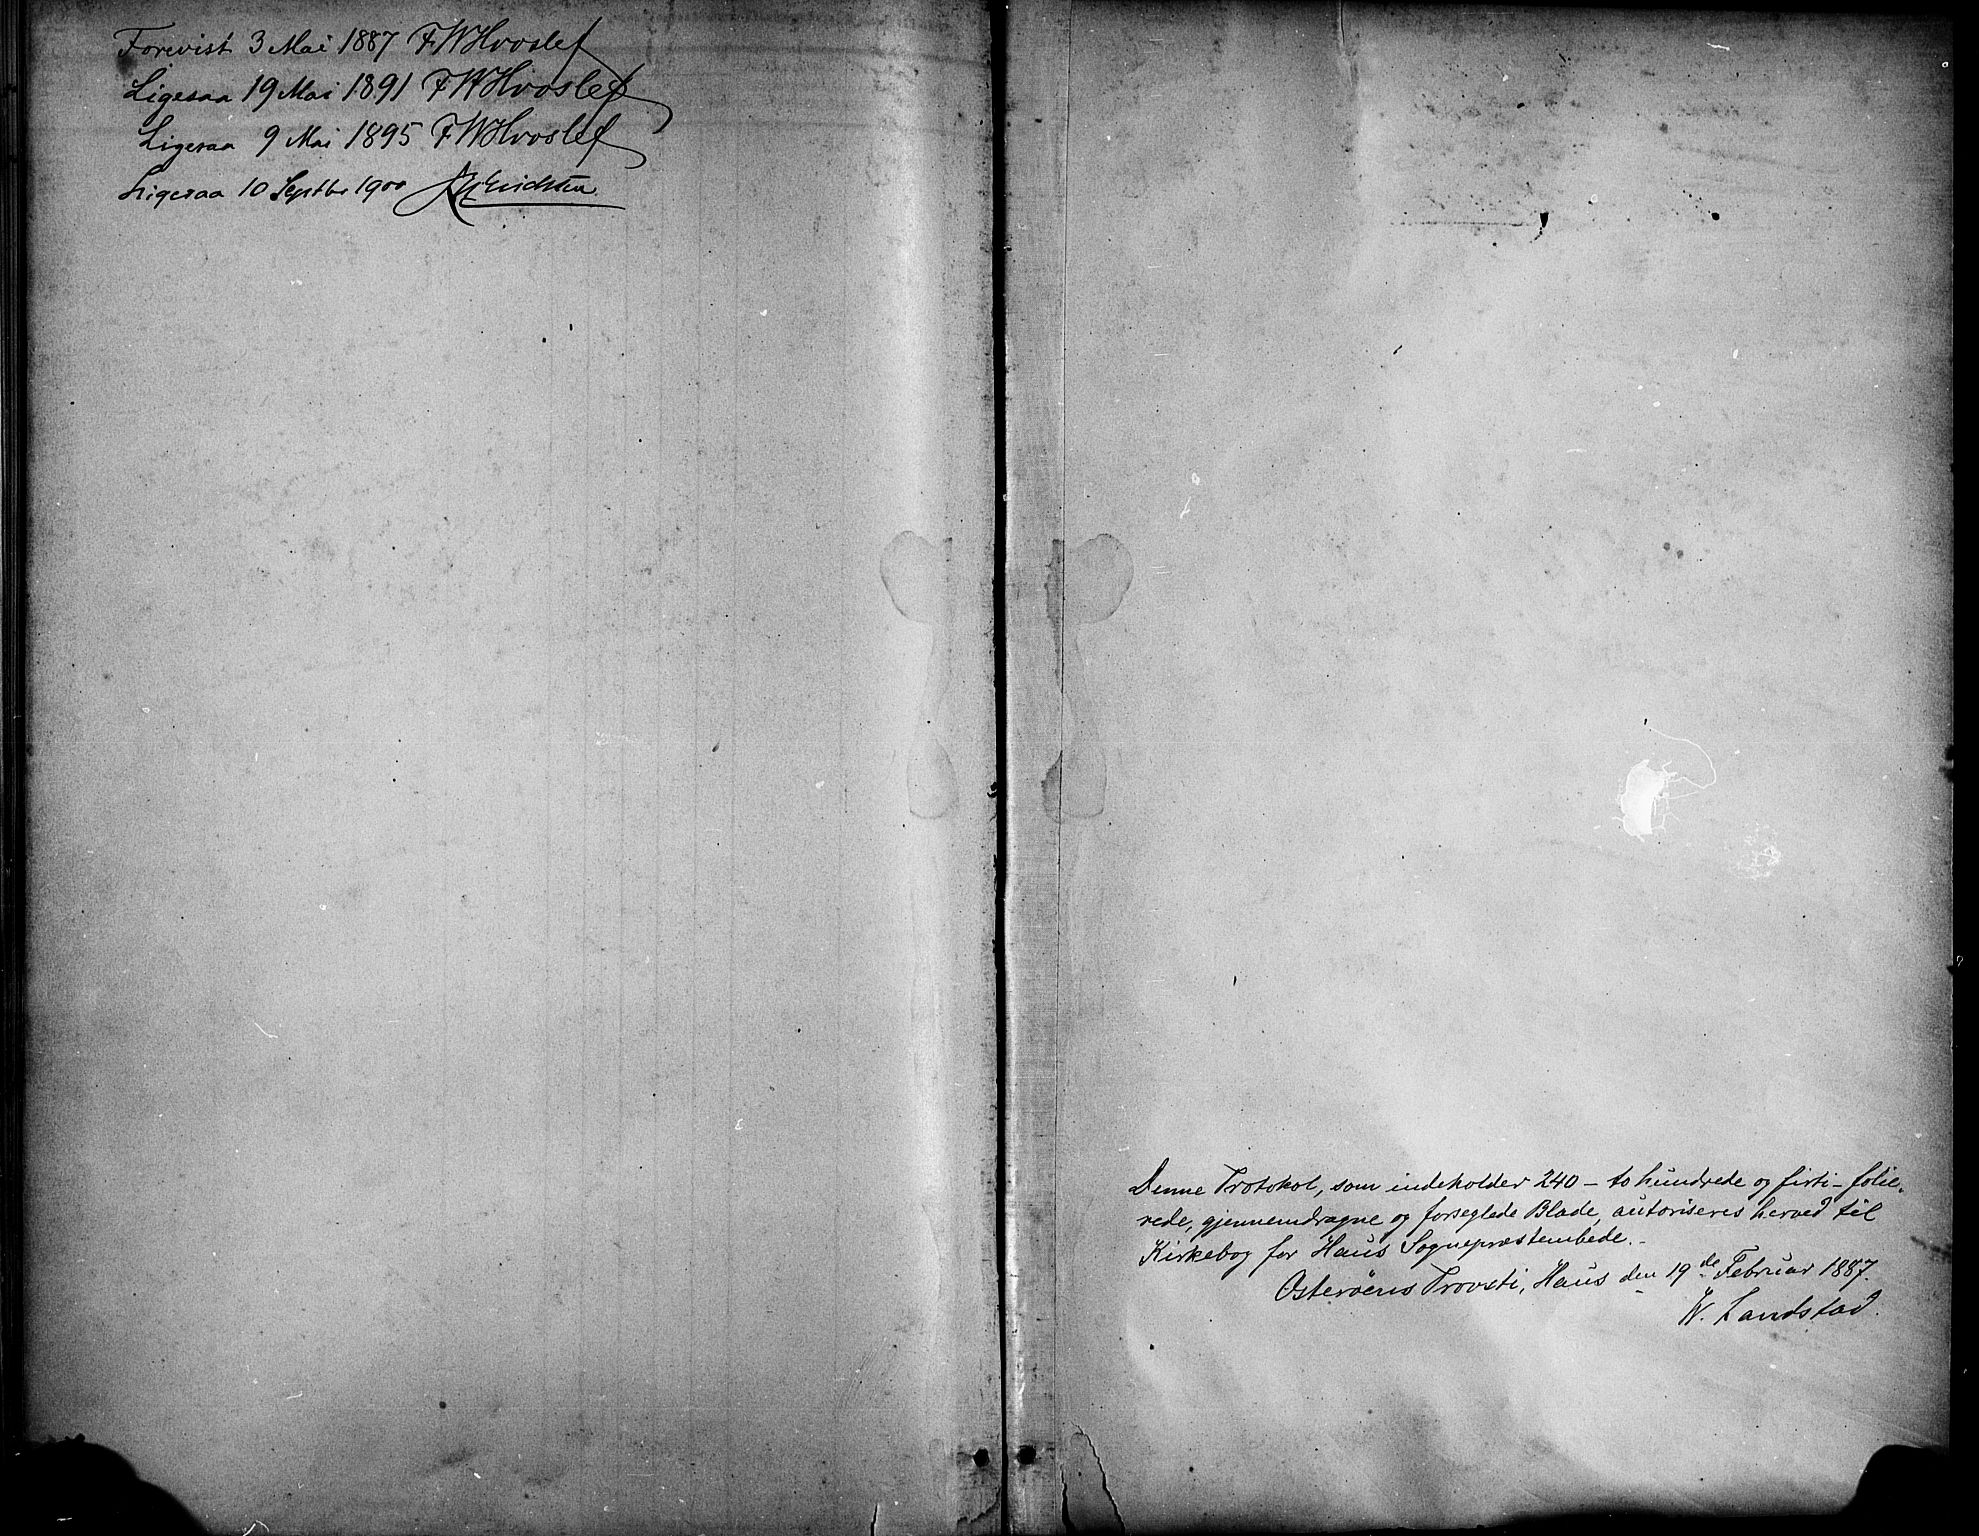 Forevist 3 Mai 1887 FWHvoslef
Ligesaa 19 Mai 1891 FWHvoslef
Ligesaa 9 Mai 1895 FWHvoslef
Ligesaa 10 Septbr 1900
Denne Protokol, som indeholder 240 – to hundrede og firti – folie-
rede, gjennemdragne og forseglede Blade, autoriseres herved til
Kirkebog for Haus Sognepræstembede. –
Osterøens Provsti, Haus den 19de Februar 1887.
W. Landstad.